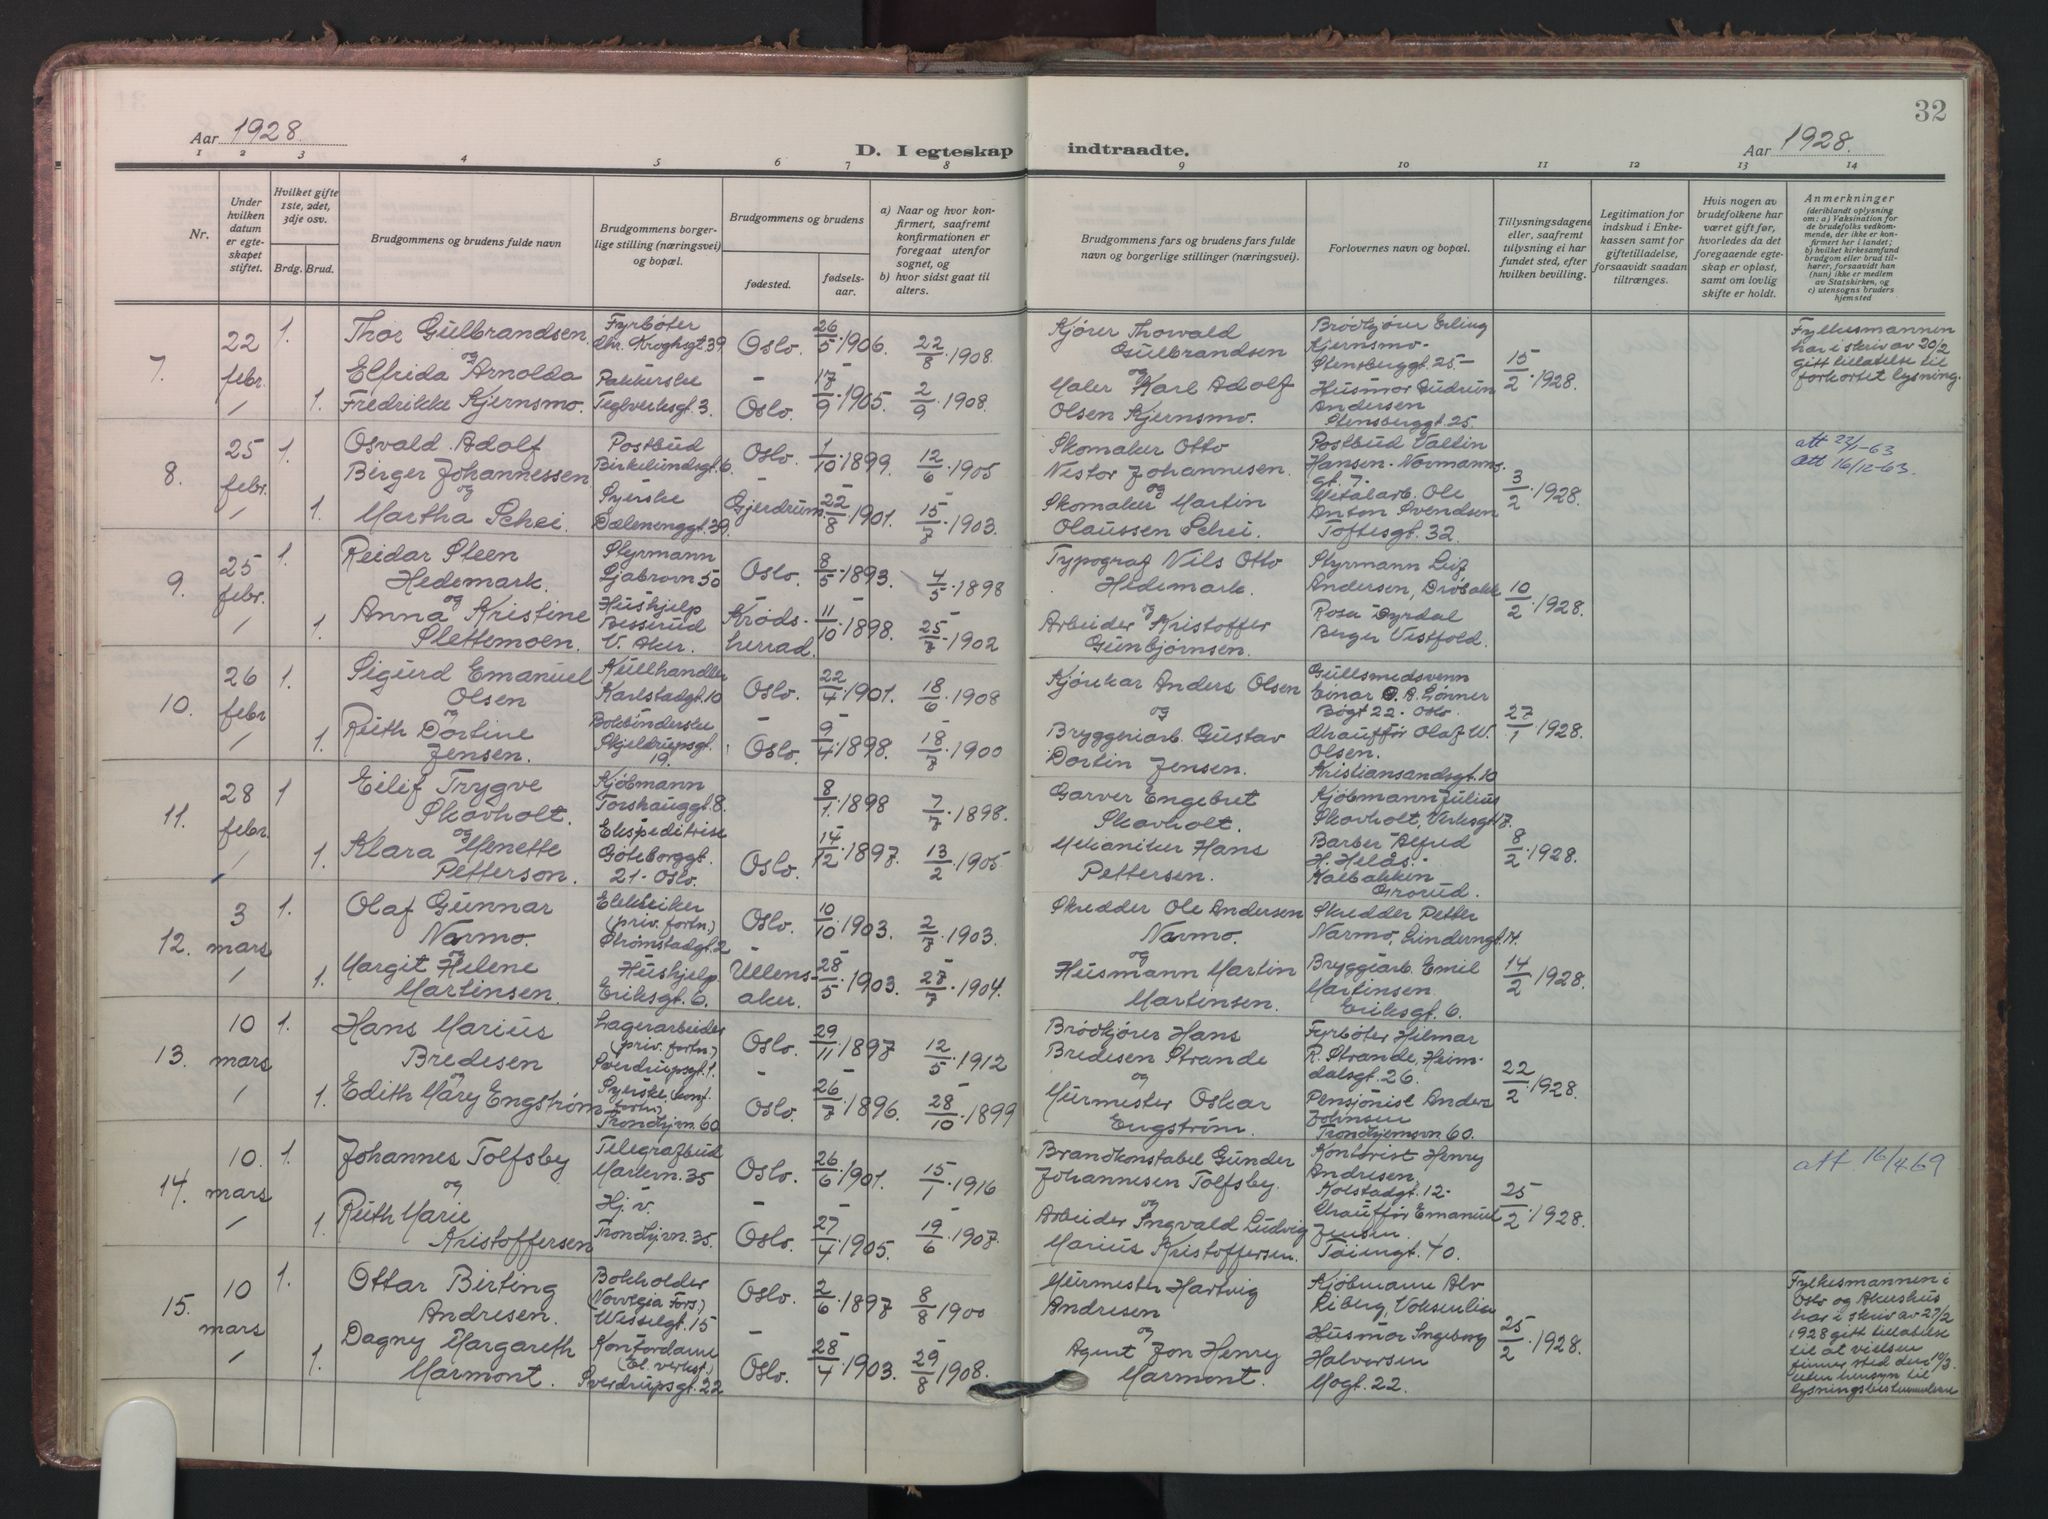 32
Aar 1928.
D. I egteskap indtraadte.
Aar 1928.
1 2 3 4 5 6 7 8 9 10 11 12 13 14
Nr.
Under hvilken datum er egteskapet stiftet.
Hvilket gifte 1ste, 2det, 3dje osv.
Brdg. Brud.
Brudgommens og brudens fulde navn
Brudgommens borgerlige stilling (næringsvei) og bopæl.
Brudgommens og brudens
fødested.
fødselsaar.
a) Naar og hvor konfirmert, saafremt konfirmationen er foregaat utenfor sognet, og
b) hvor sidst gaat til alters.
Brudgommens fars og brudens fars fulde navn og borgerlige stillinger (næringsvei).
Forlovernes navn og bopæl.
Tillysningsdagene eller, saafremt tillysning ei har fundet sted, efter hvilken bevilling.
Legitimation for indskud i Enkekassen samt for giftetilladelse, forsaavidt saadan tiltrænges.
Hvis nogen av brudefolkene har været gift før, hvorledes da det foregaaende egteskap er opløst, samt om lovlig skifte er holdt.
Anmerkninger
(deriblandt oplysning om: a) Vaksination for de brudefolks vedkommende, der ikke er konfirmert her i landet; b) hvilket kirkesamfund brudgom eller brud tilhører, forsaavidt han (hun) ikke er medlem av Statskirken, og c) utensogns bruders hjemsted
7. 22 febr. 1. 1.
Thor Gulbrandsen.
og
Elfrida Arnolda
Fredrikke Kjernsmo.
Fyrbøter
Chr. Kroghsgt. 39
Pakkerske
Teglverksgt. 3.
Oslo. 26/5 1906. 22/8 1908.
Oslo. 17/9 1905. 2/9 1908.
Kjører Thorvald
Gulbrandsen
og
Maler Karl Adolf
Olsen Kjernsmo.
Brødkjører Erling
Kjernsmo
Stensberggt. 25
Husmor Gudrun
Andersen
Stensberggt. 25.
15/2 1928.
Fylkesmannen
har i skriv av 20/2
gitt tillatelse til
forkortet lysning.
8. 25 febr. 1. 1.
Osvald Adolf
Birger Johannessen
og
Martha Schei.
Postbud
Birkelundsgt. 6
Syerske
Dælenenggt. 39.
Oslo. 1/10 1899. 12/6 1905
Gjerdrum. 22/8 1901. 15/7 1903.
Skomaker Otto
Nestor Johannesen.
og
Skomaker Martin
Olaussen Schei.
Postbud Valtin
Hansen. Normanns
gt. 7.
Metalarb. Ole
Anton Svendsen
Toftesgt. 32.
3/2 1928.
att 22/1-63
att 16/12-63.
9. 25 febr. 1. 1.
Reidar Steen
Hedemark.
og
Anna Kristine
Slettemoen.
Styrmann
Ljabrovn 50
Hushjelp
Besserud
V. Aker.
Oslo. 8/5 1893. 4/5 1898
Krødsherrad. 11/10 1898. 25/7 1902
Typograf Nils Otto
Hedemark.
og
Arbeider Kristoffer
Gunbjørnsen.
Styrmann Leif
Andersen, Drøbakk
Rosa Dyrdal
Berger Vestfold.
10/2 1928.
10. 26 febr 1. 1.
Sigurd Emanuel
Olsen
og
Ruth Dortine
Jensen.
Kullhandler
Karlstadgt. 10
Bokbinderske
Skjeldrupsgt.
19.
Oslo. 22/4 1901. 18/6 1908
Oslo. 9/4 1898. 18/7 1900
Kjørekar Anders Olsen
og
Bryggeriarb. Gustav
Dortin Jensen.
Gullsmedsvenn
Einar O. A. Lønner
Bøgt 22 - Oslo.
Chauffør Olaf W.
Olsen.
Kristiansandsgt. 10
27/1 1928.
11. 28 febr. 1 1.
Eilif Trygve
Skovholt.
og
Klara Menette
Petterson.
Kjøbmann
Torshauggt. 8.
Ekspeditrise
Gøteborggt.
21 - Oslo.
8/1 1898 7/7 1898.
Oslo. 14/12 1897. 13/2 1905
Garver Engebret
Skovholt.
Mekaniker Hans
Pettersen.
Kjøbmann Julius
Skovholt, Verksgt 17.
Barber Alfred
H. Helds.
Kalbakken
Grorud.
8/2 1928.
12. 3 mars 1. 1.
Olaf Gunnar
Narmo.
og
Margit Helene
Martinsen.
Elektriker
(priv. fortn.)
Strømstadgt. 2
Hushjelp
Eriksgt. 6.
Oslo. 10/10 1903. 2/7 1903.
Ullensaker. 28/5 1903. 27/7 1904.
Skredder Ole Andersen
Narmo.
og
Husmann Martin
Martinsen.
Skredder Petter
Narmo, Linderngt. 14.
Bryggiarb. Emil
Martinsen.
Eriksgt. 6.
14/2 1928.
13. 10 mars 1. 1.
Hans Marius
Bredesen
og
Edith Mary Engstrøm
Lagerarbeider
(priv. fortn.)
Sverdrupsgt. 1.
Syerske (konf.
fortn.)
Trondhjvn. 60
Oslo. 29/11 1897 12/5 1912
Oslo. 26/7 1896. 28/10 1899
Brødkjører Hans
Bredesen Strande
og
Murmester Oskar
Engstrøm.
Fyrbøter Hilmar
R. Strande, Heim-
dalsgt. 26.
Pensjonist Anders
Johnsen
Trondhjemsvn 60.
22/2 1928.
14. 10. mars 1. 1.
Johannes Tolfsby
og
Ruth Marie
Kristoffersen
Telegrafbud
Markvn. 35
Hj. v.
Trondhjvn. 35.
Oslo. 26/6 1901. 15/1 1916
Oslo. 27/4 1905. 19/6 1907
Brandkonstabel Gunder
Johannesen Tolfsby.
og
Arbeider Ingvald Ludvig
Marius Kristoffersen.
Kontorist Henry
Andresen,
Kolstadgt. 12.
Chauffør Emanuel
Jensen.
Tøiengt. 40.
25/2 1928.
att. 16/4 69
15. 10 mars 1. 1.
Ottar Birting
Andresen.
Dagny Margareth
Marmont.
Bokholder
(Norvegia Fors.)
Wesselgt. 15
Kontordame
(El. verkst.)
Sverdrupsgt. 22
Oslo. 2/6 1897 8/8 1900
Oslo. 28/4 1903. 29/8 1908.
Murmester Hartvig
Andresen
og
Agent Jon Henry
Marmont.
Kjøbmann Alv
Riberg, Voksenlia
Husmor Ingeborg
Halvorsen
Mogt. 22.
25/2 1928.
Fylkesmannen i
Oslo og Akershus
har i skriv av 27/2
1928 gitt tillatelse
til at vielsen
finner sted den 10/3.
uten hensyn til
lysningsbestemmelsene